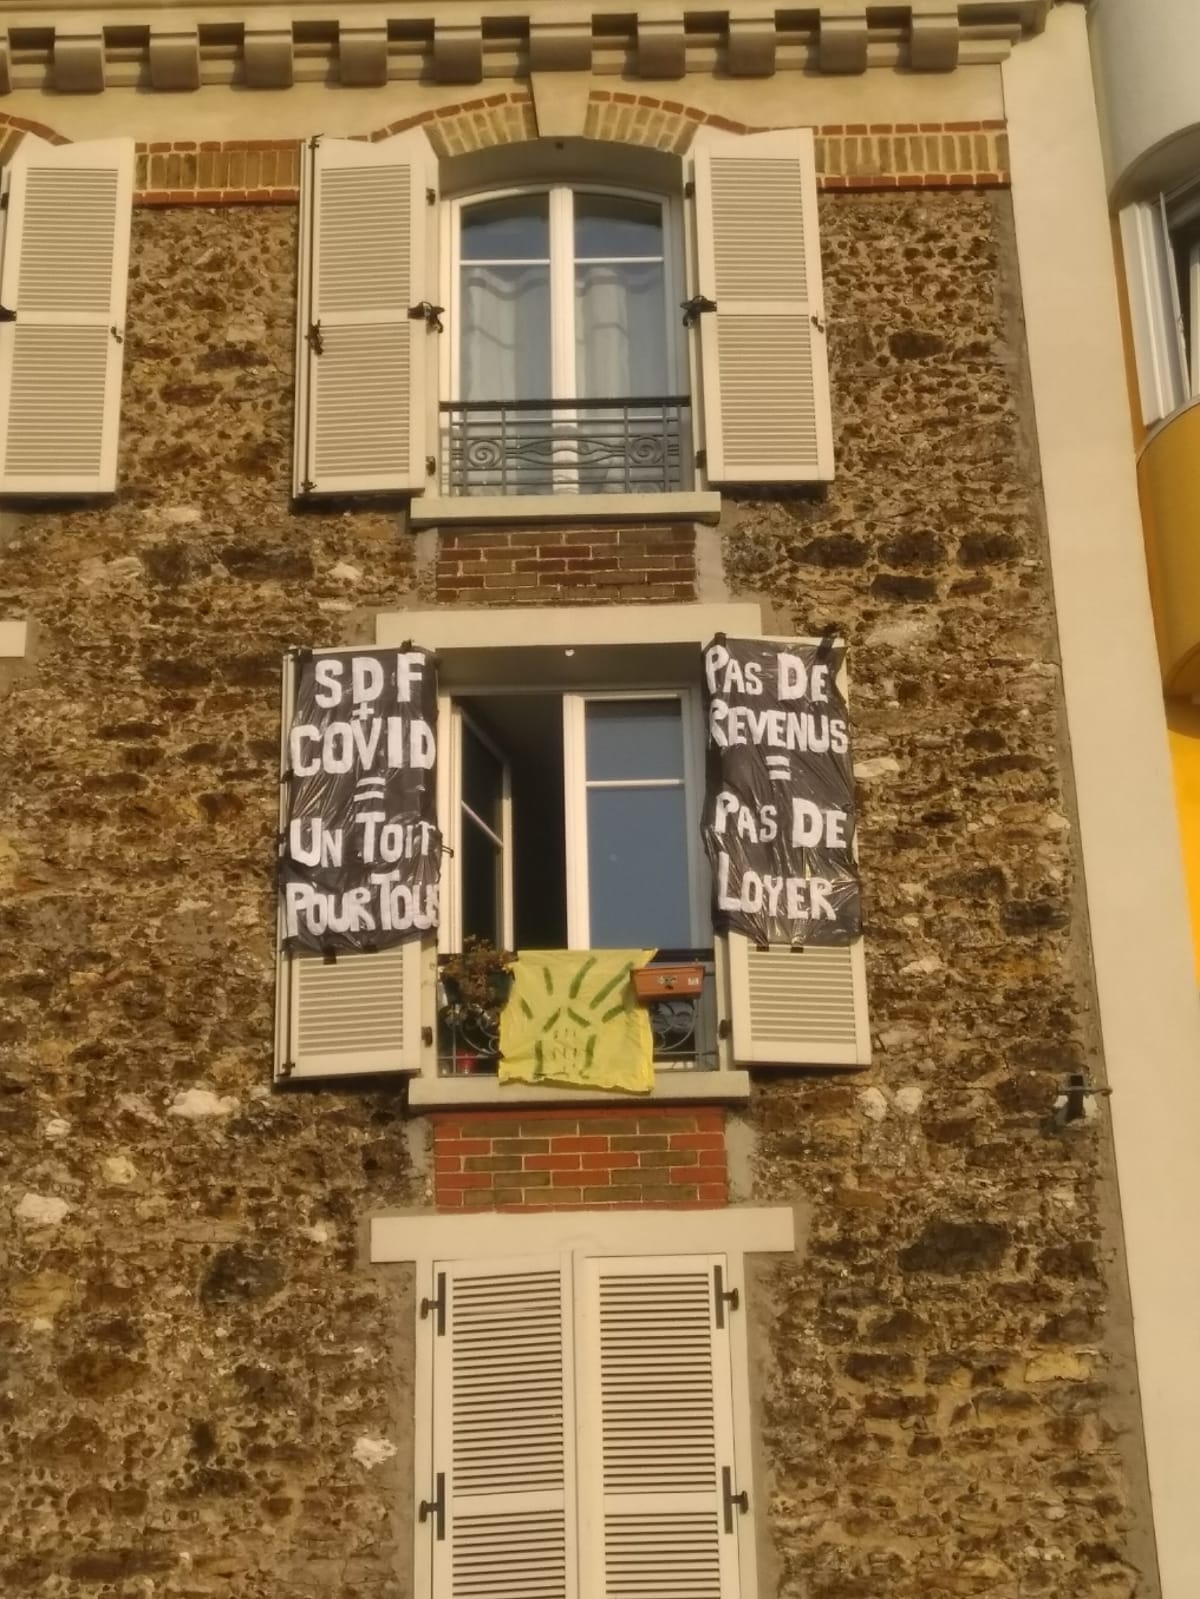 SDF
+
COVID
=
UN TOIT
POUR TOUS
PAS DE
REVENUS
=
PAS DE
LOYER